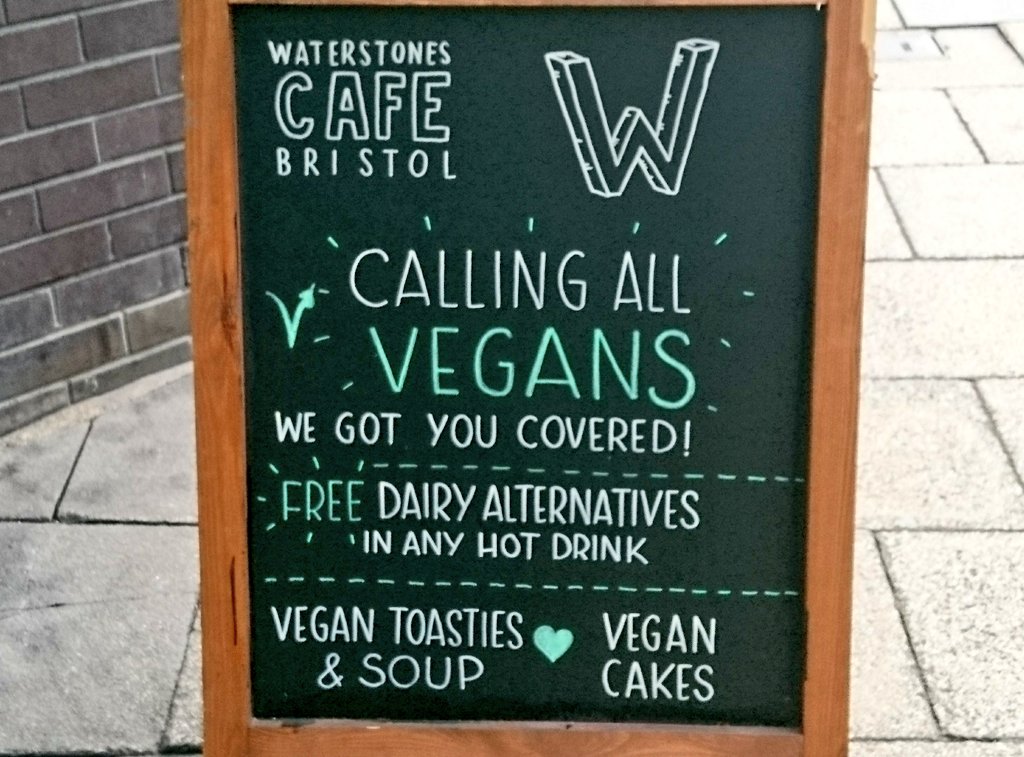 WATERSTONES
CAFE
BRISTOL
W
CALLING ALL
V VEGANS
WE GOT YOU COVERED!
FREE DAIRY ALTERNATIVES
IN ANY HOT DRINK
VEGAN TOASTIES
& SOUP
VEGAN
CAKES